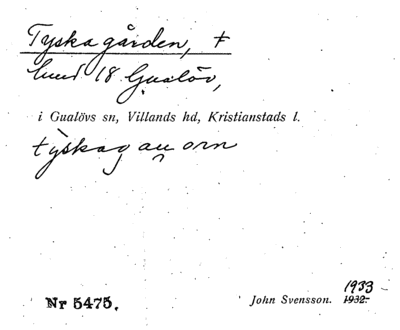 Tyska gården, +
hmd 18 Gualöv,
i Gualövs sn, Villands hd, Kristianstads l.
Nr 5475.
John Svensson. 1933
1932.